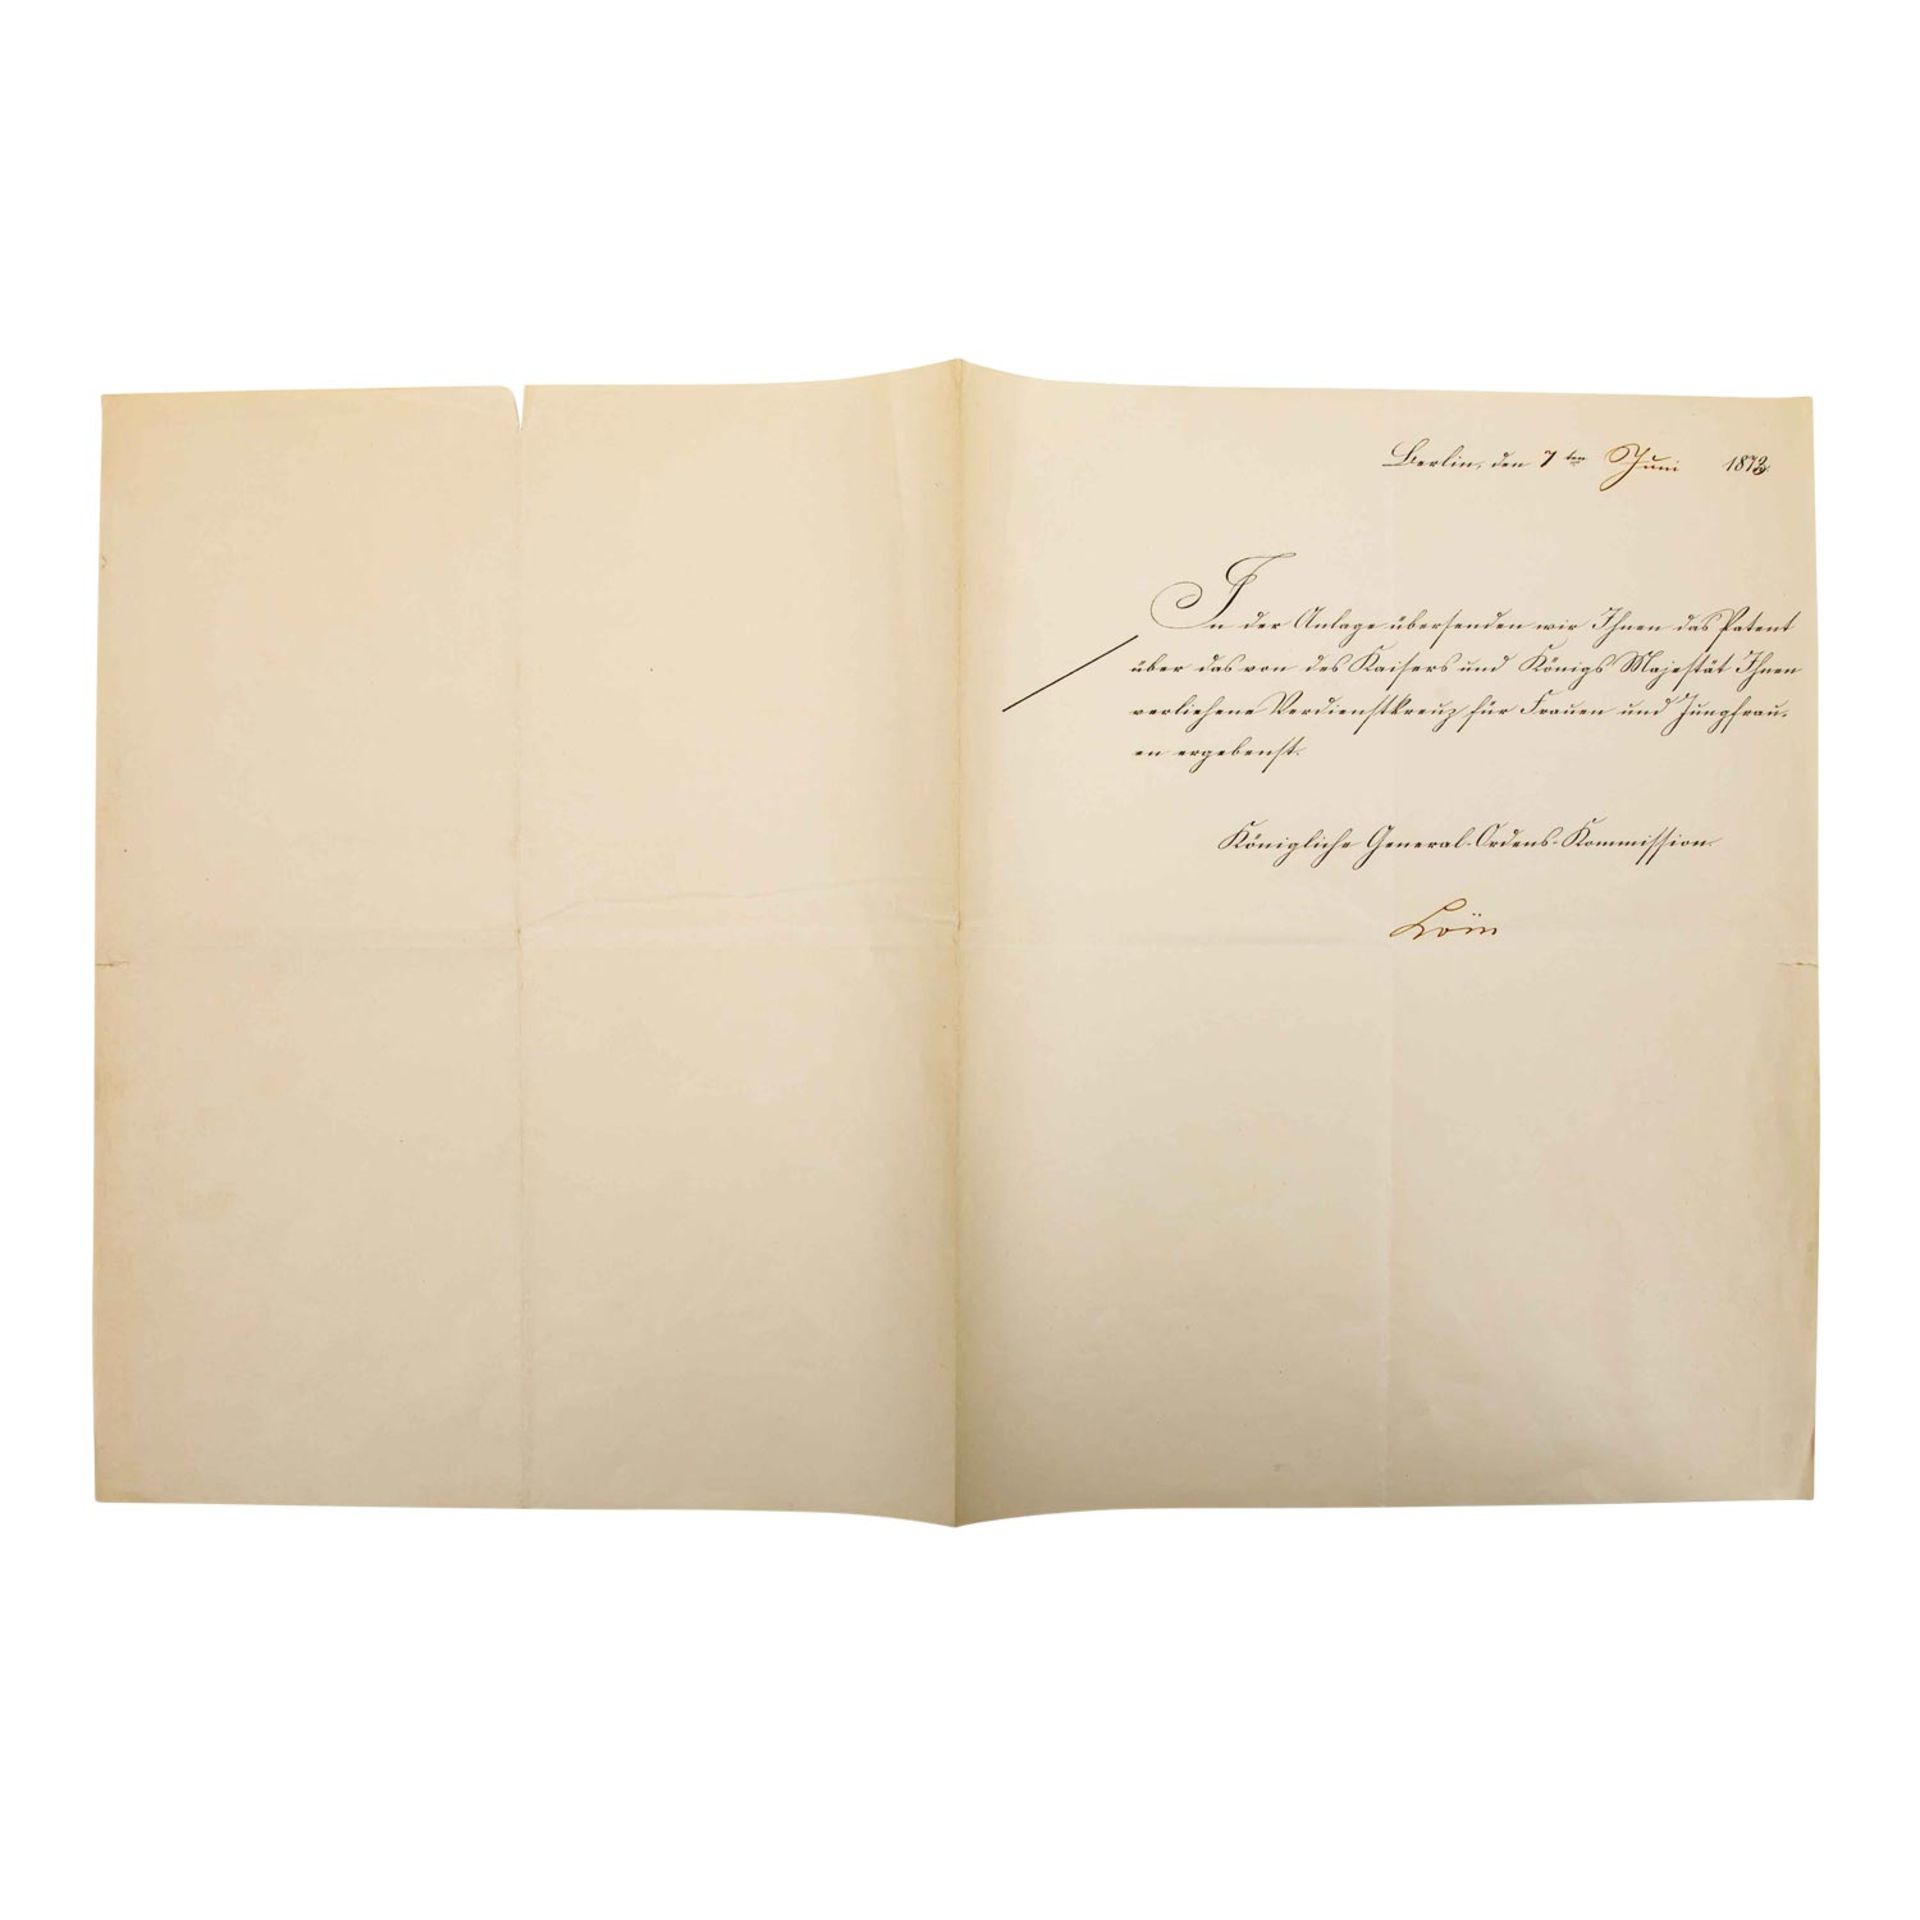 Berlin, den 7ten Juni 1872.
In der Anlage übersenden wir Ihnen das Patent
über das von des Kaisers und Königs Majestät Ihnen
verliehene Verdienstkreuz für Frauen und Jungfrau-
en ergebenst.
Königliche General-Ordens-Kommission.